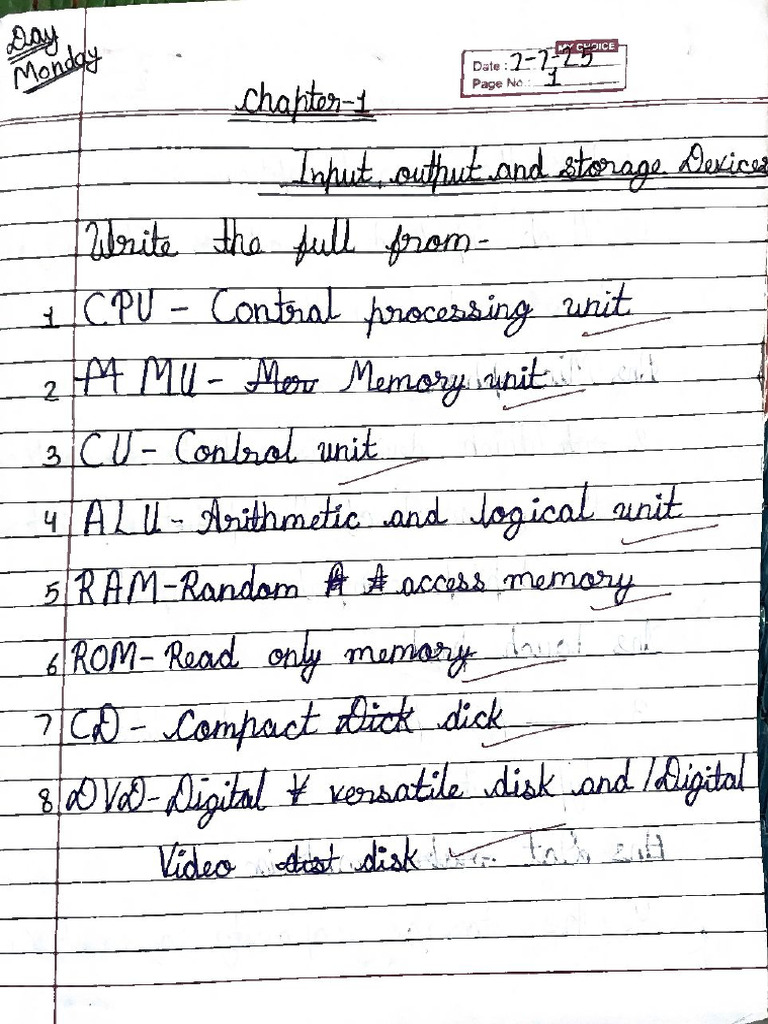 Day
Monday
MY CHOICE
Date: 7-7-25
Page No.: 1
Chapter-1
Input, output and storage Devices
Write the full from-
1 CPU - Contral processing unit
2 MU - Memory unit
3 CU - Control unit
4 ALU - Arithmetic and logical unit
5 RAM - Random access memory
6 ROM - Read only memory
7 CD - Compact dick
8 DVD - Digital versatile disk and / Digital
Video disk